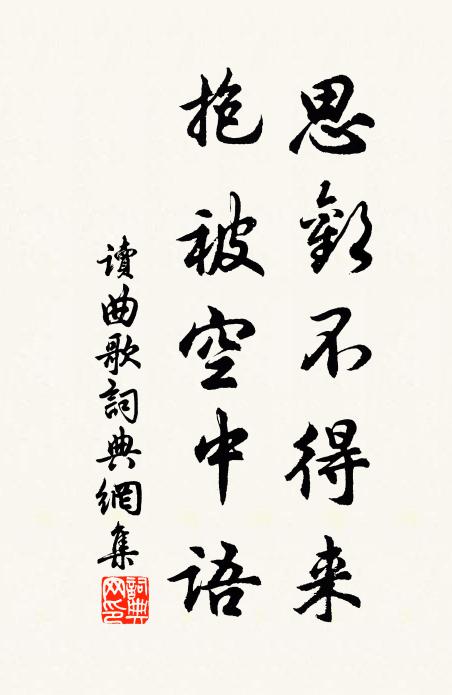 思歡不得来
抱被空中語
讀曲歌詞典網集
詞典網印